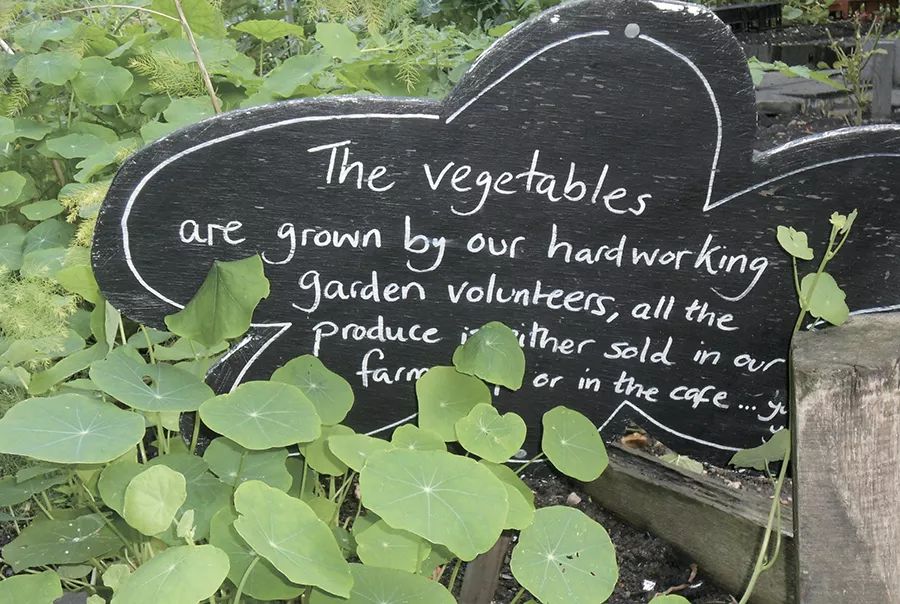 The vegetables
are grown by our hardworking
garden volunteers, all the
produce is either sold in our
farm or in the cafe ...